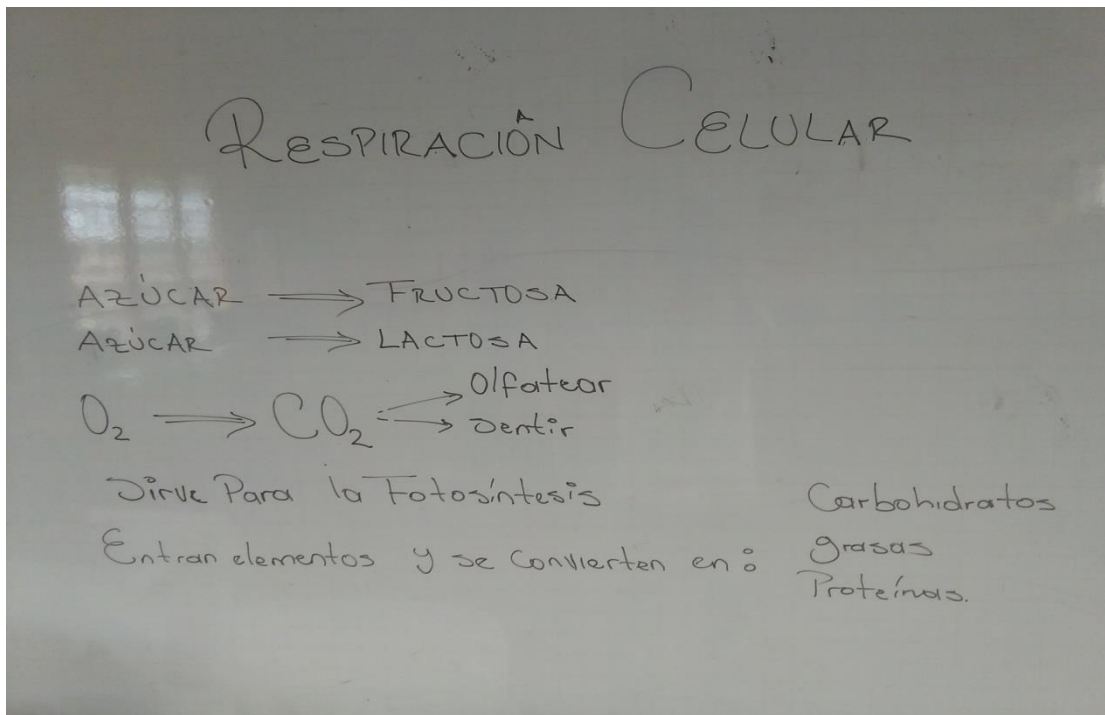 RESPIRACIÓN CELULAR
AZÚCAR ⟹ FRUCTOSA
AZÚCAR ⟹ LACTOSA
O₂ ⟹ CO₂ → Olfatear
→ Sentir
Sirve Para la Fotosíntesis
Entran elementos y se convierten en:
Carbohidratos
grasas
Proteínas.